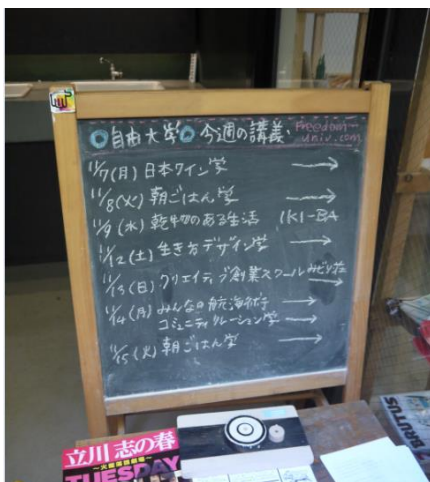 自由大学 今週の講義
Freedom-
univ.com
11/7(月) 日本ワイン学 →
11/8(火) 朝ごはん学 →
11/9(水) 乾物のある生活 IKI-BA
11/12(土) 生き方デザイン学 →
11/13(日) クリエイティブ創業スクール みどり荘 →
11/14(月) みんなの航海術 →
コミュニティリレーション学 →
11/15(火) 朝ごはん学 →
立川 志の春
TUESDAY
BRUTUS